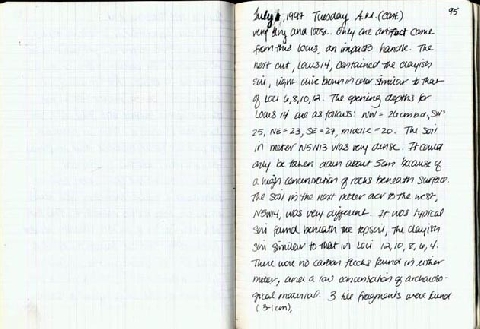 95
July 1, 1997 Tuesday A.M. (cont)
very dry and loose. Only one artifact came
from this locus, an impasto handle. The
next cut, Locus 14, contained the clayish
soil, light olive brown in color similar to that
of Loci 6, 8, 10, 12. The opening depths for
Locus 14 are as follows: NW = 26cm, SW
25, NE = 23, SE = 27, middle = 20. The soil
in meter N5W13 was very dense. It could
only be taken down about 5cm because of
a high concentration of rocks beneath surface.
The soil in the next meter over to the west,
N5W14, was very different. It was typical
soil found beneath the topsoil, the clayish
soil similar to that in Loci 12, 10, 8, 6, 4.
There were no carbon flecks found in either
meter, and a low concentration of archaeolo-
gical material. 3 tile fragments were found
(3-1cm)